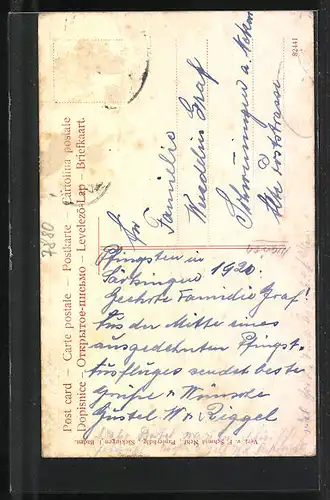 Post card — Carte postale — Postkarte — Cartolina postale
Dopisnice — Открытое письмо — Levelező-Lap — Briefkaart.
Familie
Wendelin Graf
Schwenningen a. Neckar
Alte
Pfingsten in
Säckingen 1920.
Geehrte Familie Graf!
Aus der Mitte eines
ausgedehnten Pfingst-
Ausfluges sendet beste
Grüße u Wünsche
Gustel W. Riggel
Verl. v. F. Schmid Nchf., Papierhdlg., Säckingen i. Baden.
82441
7880